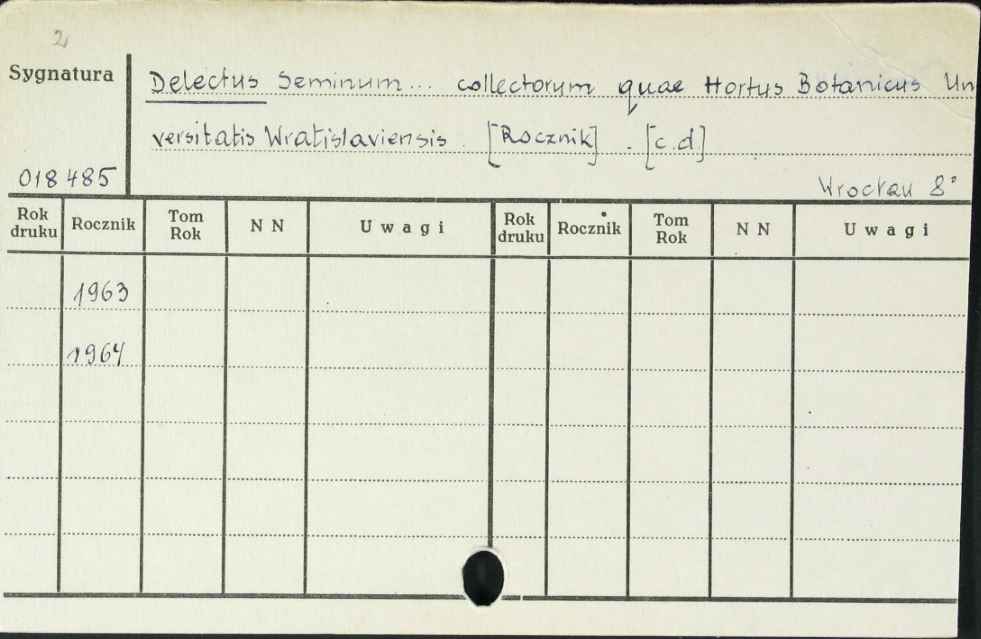 2
Sygnatura
Delectus Seminum... collectorum quae Hortus Botanicus Un
versitatis Wratislaviensis. [Rocznik]. [c.d]
018485
Wrocław 8°
Rok druku Rocznik Tom Rok N N Uwagi Rok druku Rocznik Tom Rok N N Uwagi
1963
1964